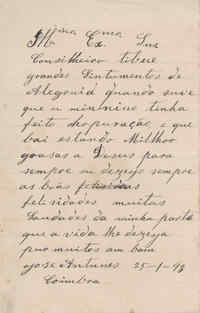 Illma Exma Snr
Conselheiro tibere
grandes Sentumentos de
Alegouiá quando suve
que u minnino tinha
feito hopuração e que
bai estando Milhor
grasas a Deus para
sempre eu dezejo sempre
as bôas
felisidades muitas
Saudades da minha parte
que a vida lhe dezeja
pur muitos am
Jose Antunes 25-1-98
Coimbra